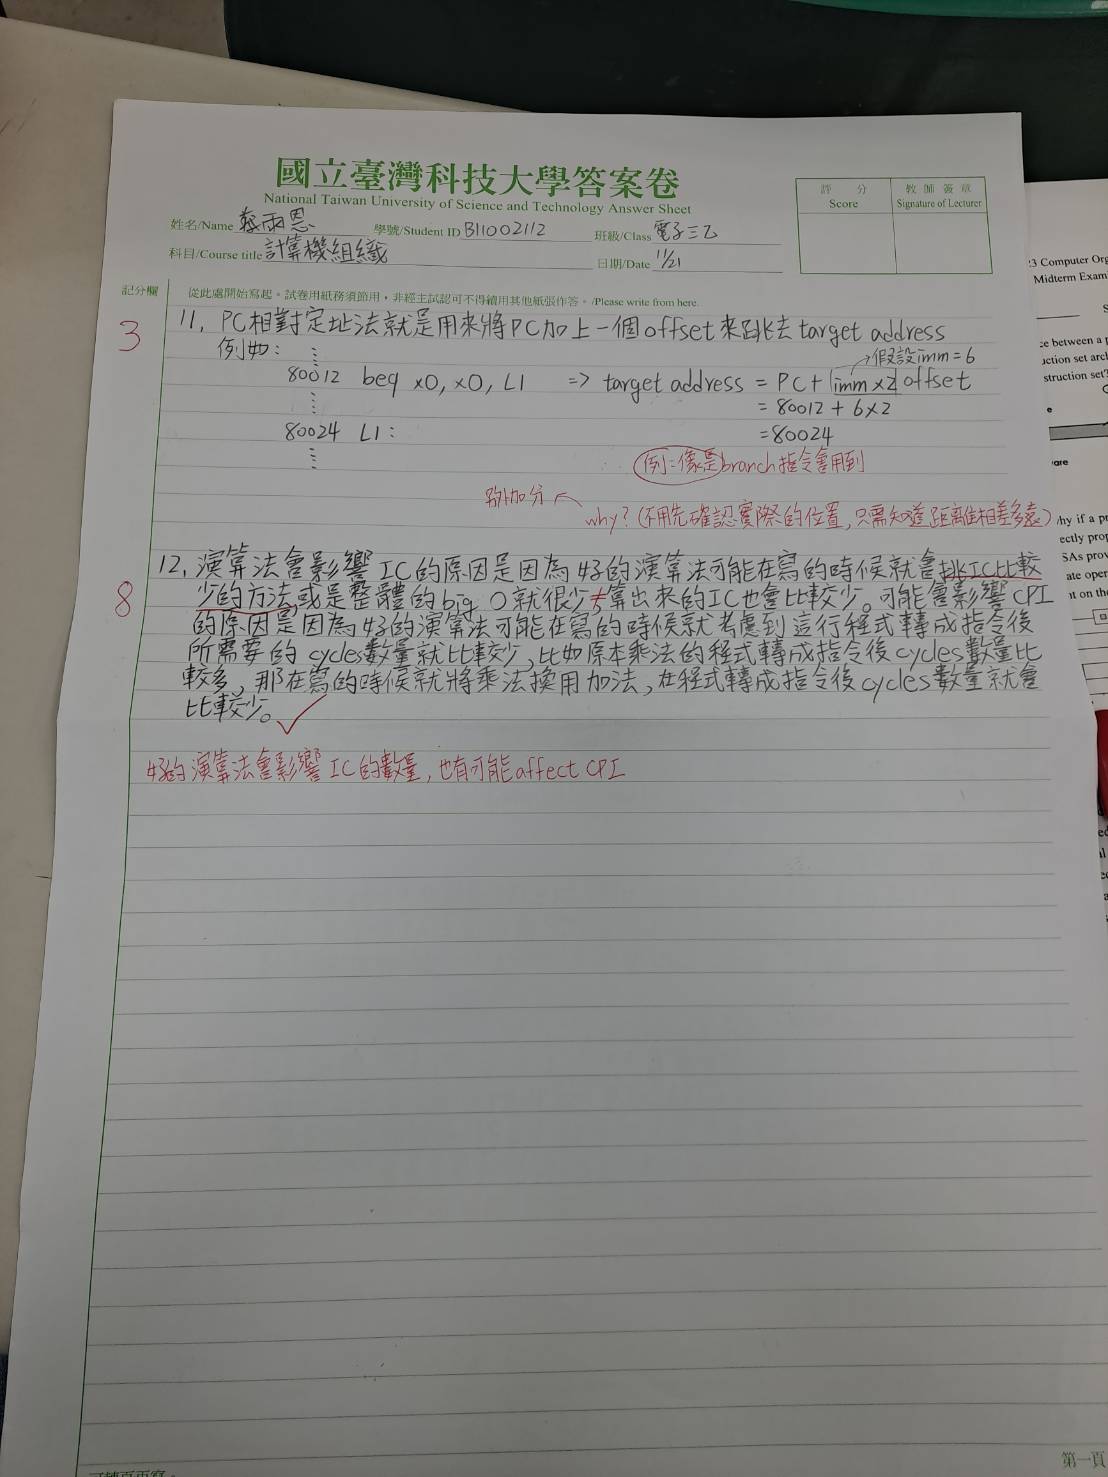 國立臺灣科技大學答案卷
National Taiwan University of Science and Technology Answer Sheet
評 分 Score
教 師 簽 章 Signature of Lecturer
姓名/Name 蔡雨恩 學號/Student ID B11002112 班級/Class 電子三乙
科目/Course title 計算機組織 日期/Date 11/21
記分欄 從此處開始寫起。試卷用紙務須節用,非經主試認可不得續用其他紙張作答。/Please write from here.
3
11. PC相對定址法就是用來將PC加上一個offset來跳去target address
例如: ⋮ →假設imm=6
80012 beq x0, x0, L1 => target address = PC + imm×2 offset
⋮ = 80012 + 6×2
80024 L1: = 80024
⋮
例:像是branch指令會用到
額外加分 ← why?(不用先確認實際的位置,只需知道距離相差多遠)
8
12. 演算法會影響IC的原因是因為好的演算法可能在寫的時候就會挑IC比較
少的方法或是整體的big O就很少,算出來的IC也會比較少。可能會影響CPI
的原因是因為好的演算法可能在寫的時候就考慮到這行程式轉成指令後
所需要的cycles數量就比較少,比如原本乘法的程式轉成指令後cycles數量比
較多,那在寫的時候就將乘法換用加法,在程式轉成指令後cycles數量就會
比較少。
好的演算法會影響IC的數量,也有可能affect CPI
第一頁
3 Computer Org
Midterm Exam
ce between a p
uction set arch
struction set?
are
hy if a p
ectly prop
SAs prov
ate oper
t on th